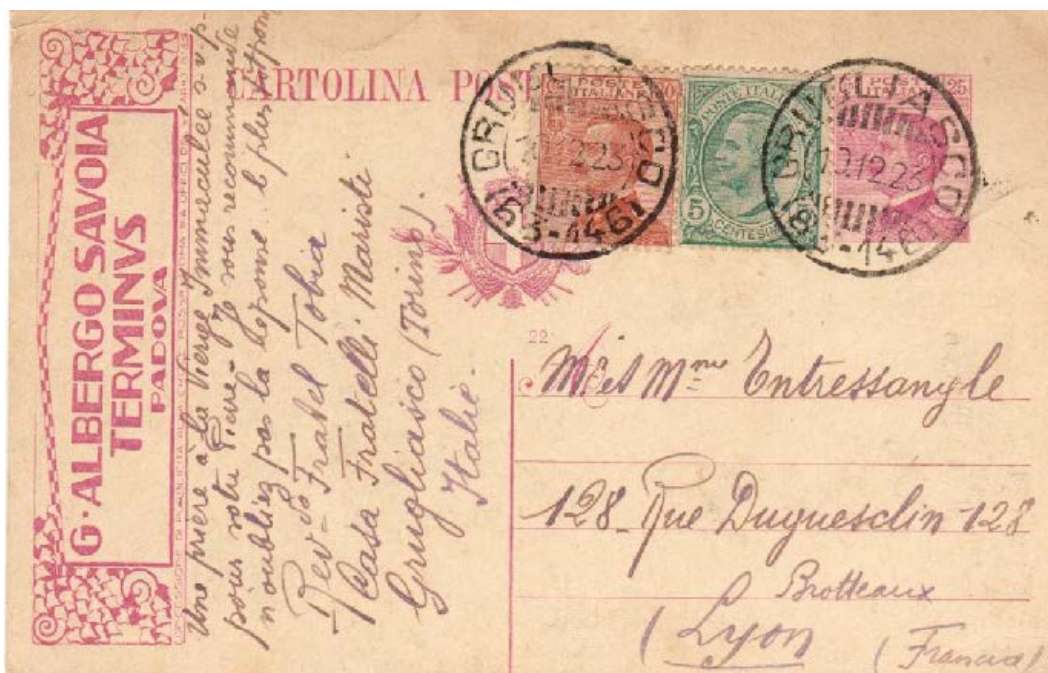 G·ALBERGO SAVOIA
TERMINVS
PADOVA
CARTOLINA POST
POSTE ITALIANE
POSTE ITALIANE
5
CENTESIMI
POSTE ITALIANE
25
GRUGLIASCO
(63-146)
GRUGLIASCO
10.12.23
(63-146)
Une prière à la Vierge Immaculée s.v.p.
pour votre Pierre - Je vous recommande
n'oubliez pas la réponse le plus
Rev-do Fratel Tobia
Casa Fratelli Maristi
Grugliasco (Torino).
Italie.
22
Mr et Mme Entressangle
128 Rue Duguesclin-128
Brotteaux
(Lyon
(Francia)